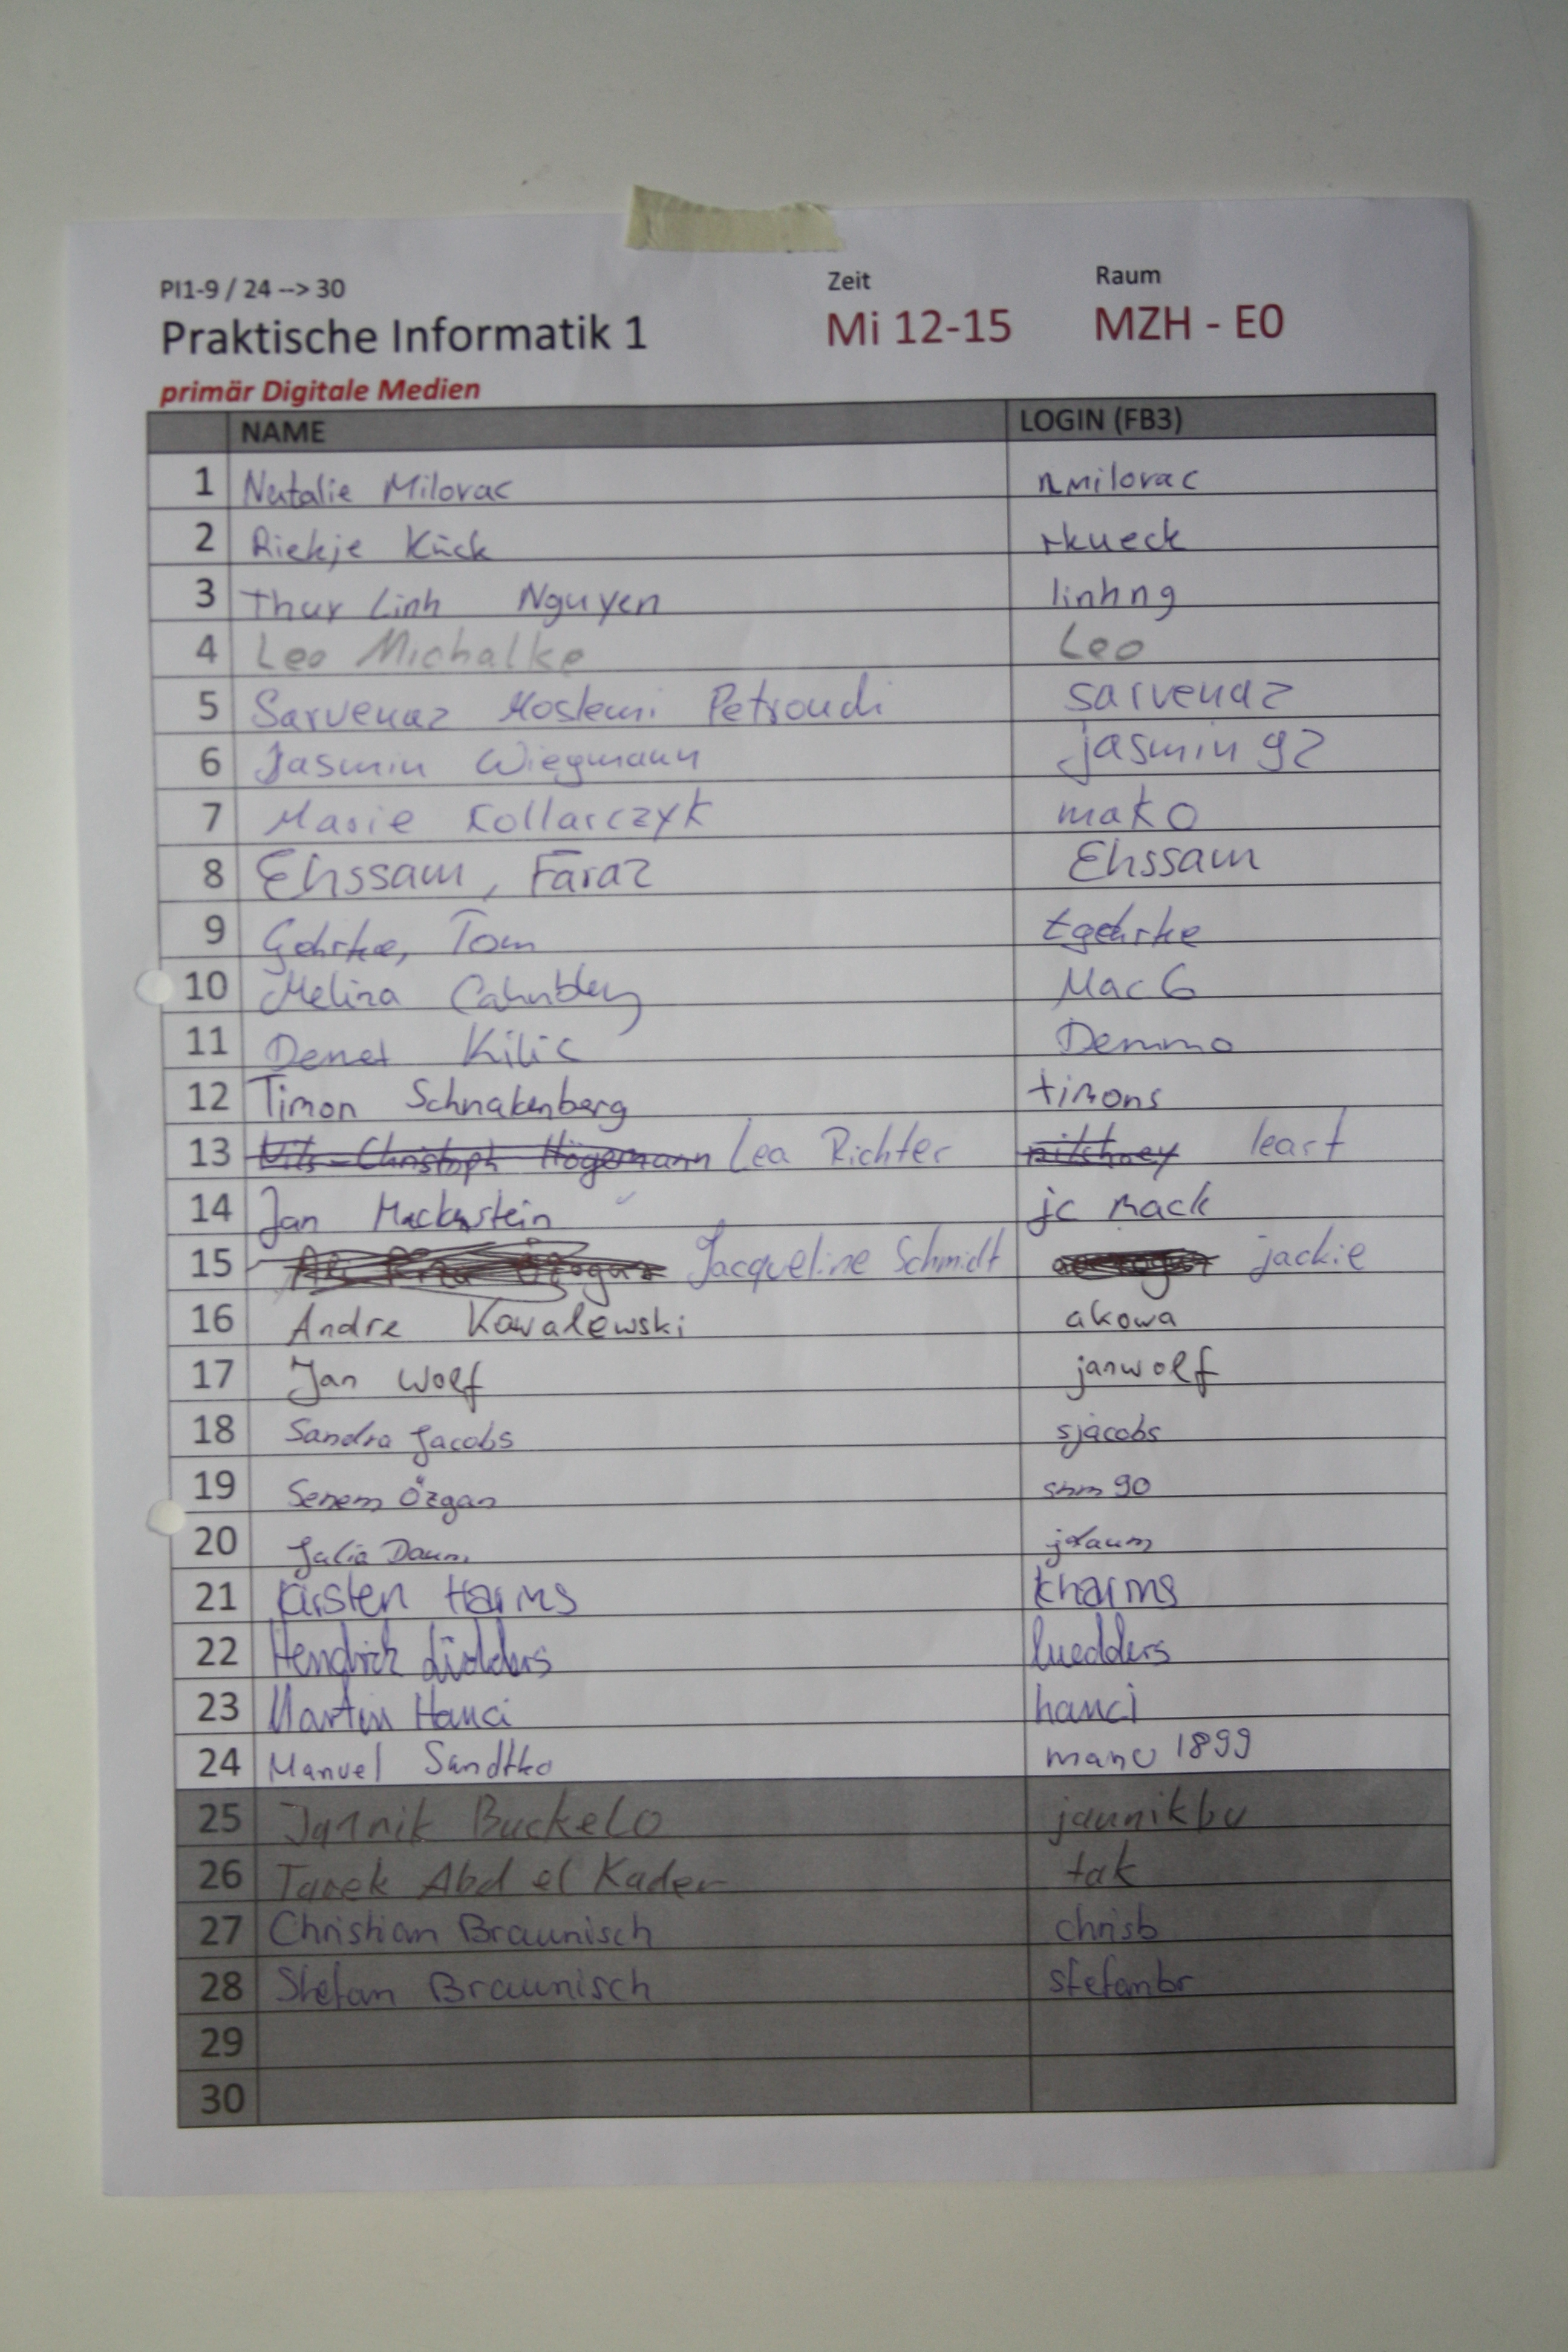 PI1-9 / 24 --> 30 Zeit Raum
Praktische Informatik 1 Mi 12-15 MZH - E0
primär Digitale Medien
NAME LOGIN (FB3)
1 Natalie Milovac nmilovac
2 Riekje Kück rkueck
3 Thuy Linh Nguyen linhng
4 Leo Michalke Leo
5 Sarvenaz Moslemi Petroudi sarvenaz
6 Jasmin Wiegmann jasmin92
7 Marie Kollarczyk mako
8 Ehssam, Faraz Ehssam
9 Gehrke, Tom tgehrke
10 Melina Cahnbley Mac6
11 Demet Kilic Demmo
12 Timon Schnakenberg timons
13 Nils-Christoph Högemann Lea Richter leart
14 Jan Mackenstein jcmack
15 Jacqueline Schmidt jackie
16 Andre Kowalewski akowa
17 Jan Wolf janwolf
18 Sandra Jacobs sjacobs
19 Senem Özgan snm90
20 Julia Daum jdaum
21 Kirsten Harms kharms
22 Hendrick Lüdders luedders
23 Martin Hanci hanci
24 Manuel Sandtko manu1899
25 Jannik Buckelo jannikbu
26 Tarek Abd el Kader tak
27 Christian Braunisch chrisb
28 Stefan Braunisch stefanbr
29
30